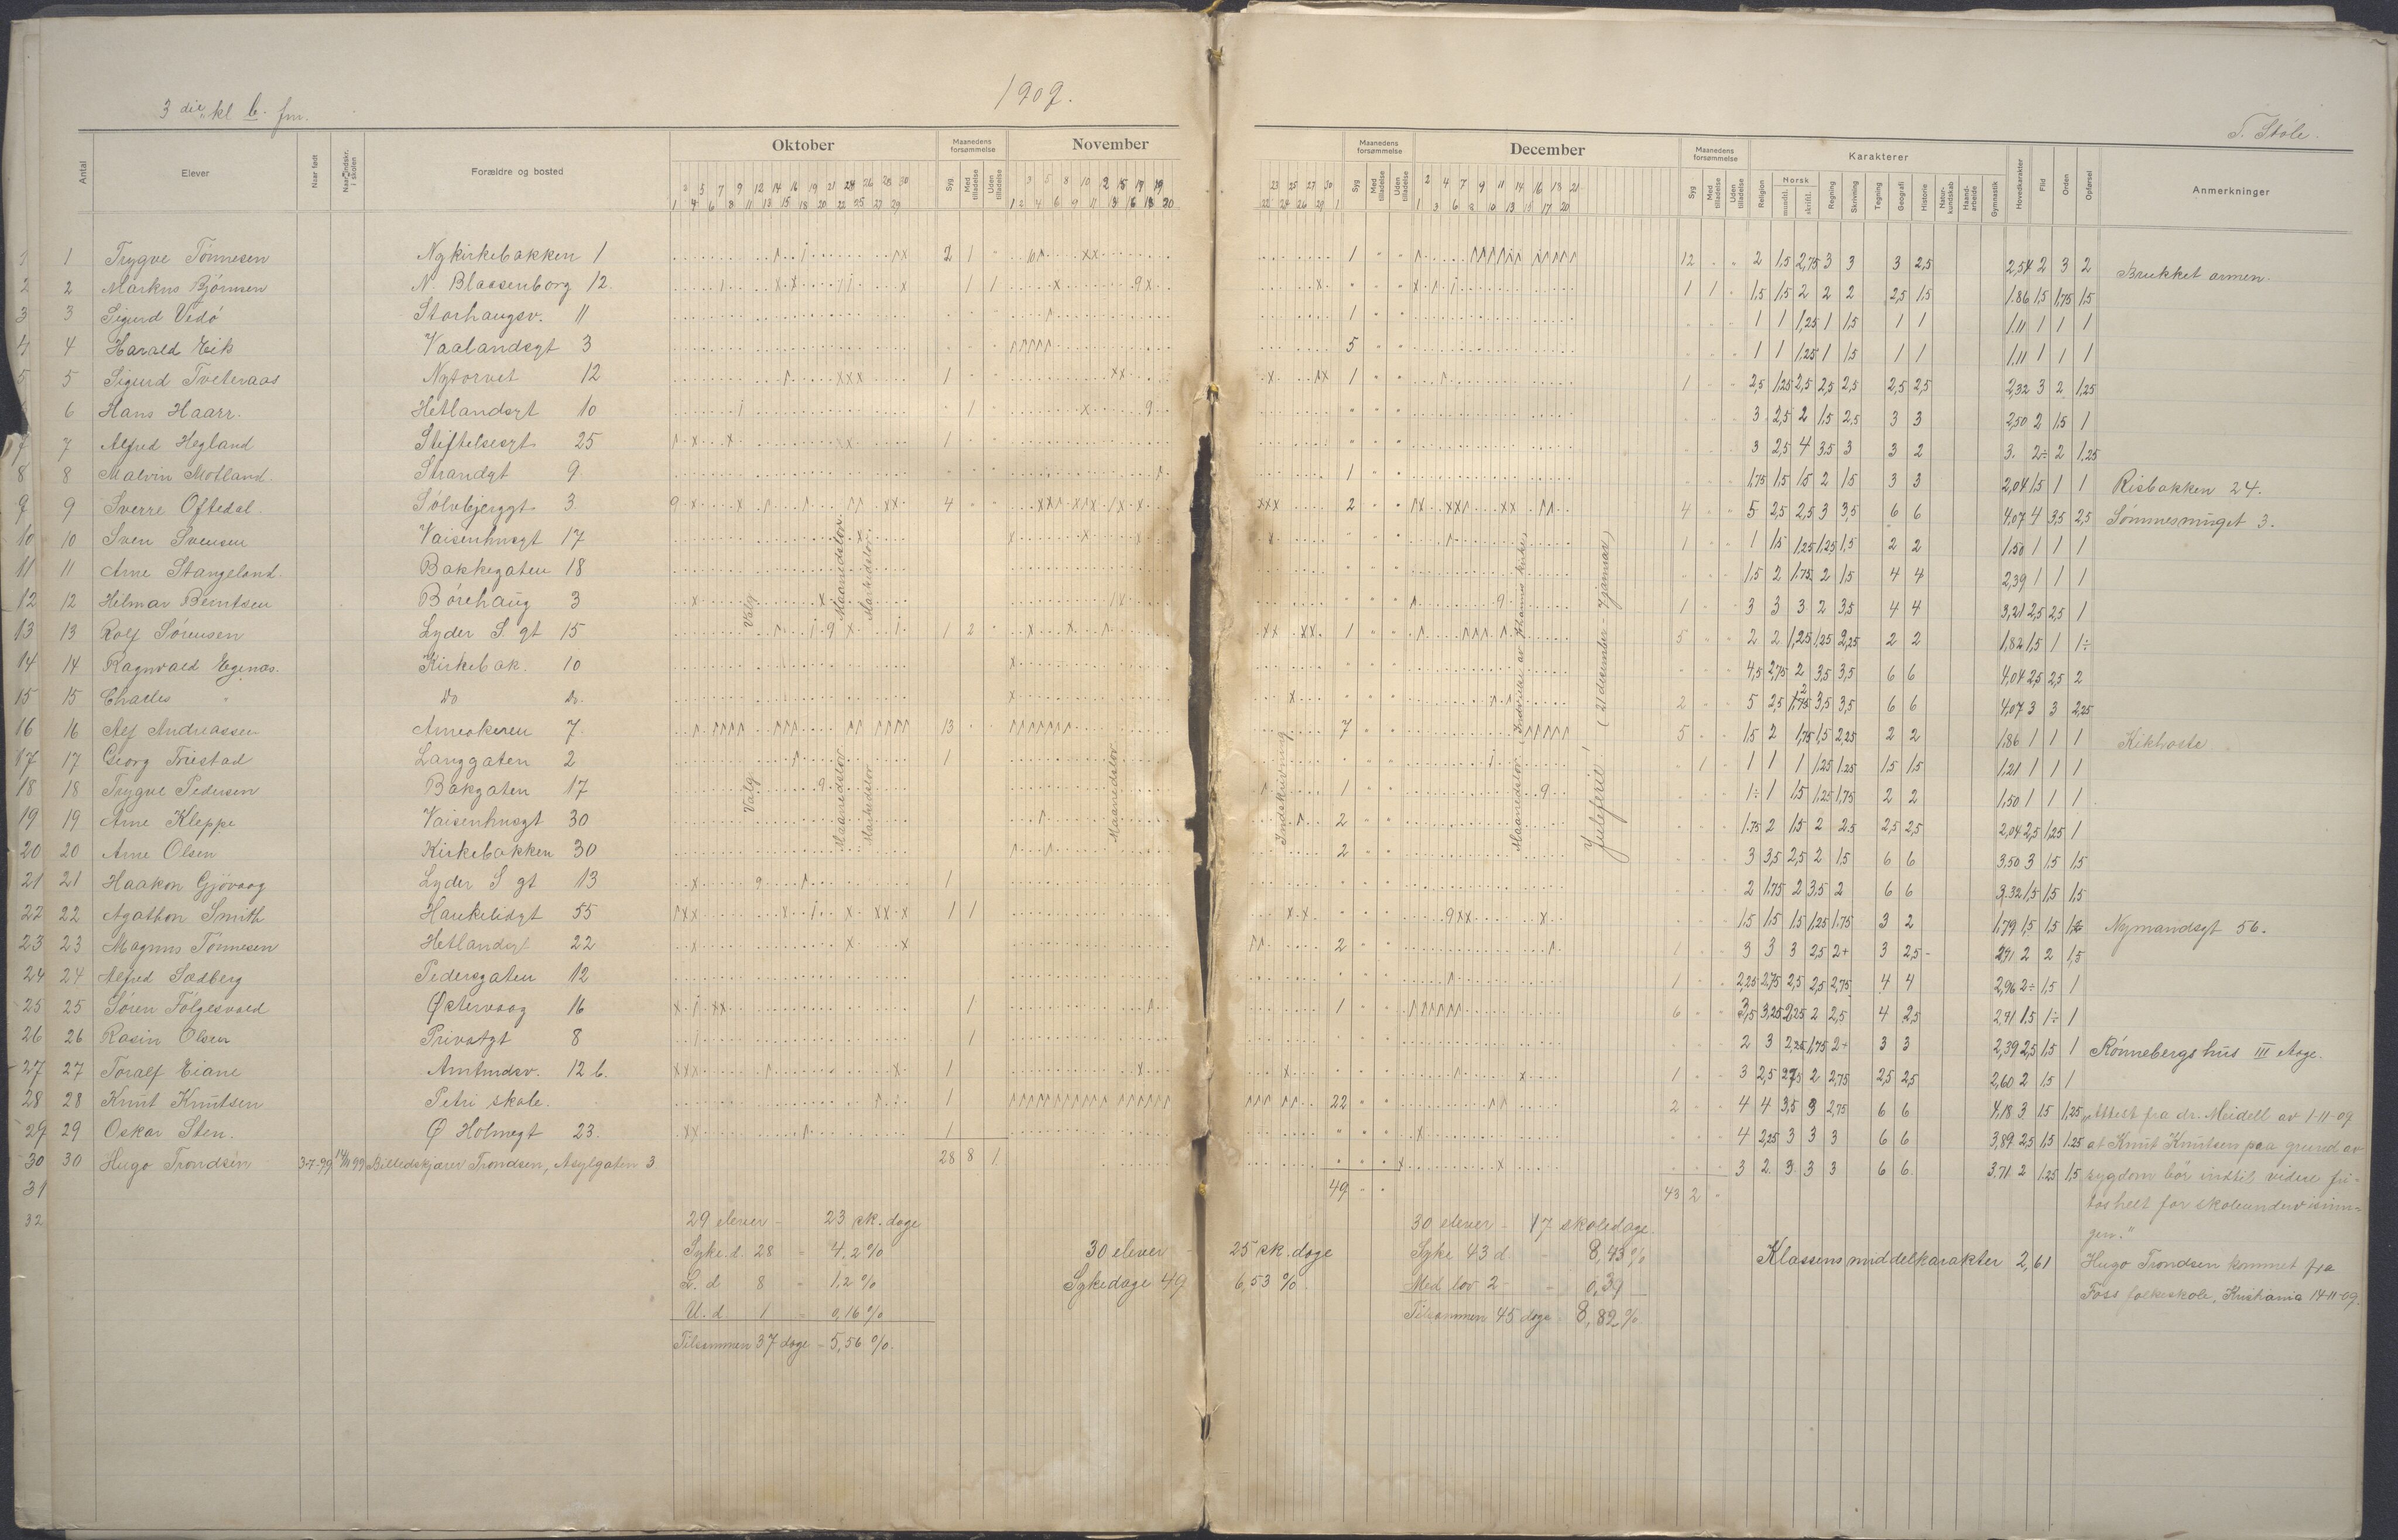 1909.
3 die kl b. fm.
T. Støle.
Antal
Elever
Naar født
Forældre og bosted
Oktober
Maanedens forsømmelse
Syg
Med tilladelse
Uden tilladelse
November
Maanedens forsømmelse
Syg
Med tilladelse
Uden tilladelse
December
Maanedens forsømmelse
Syg
Med tilladelse
Uden tilladelse
Karakterer
Religion
Norsk
mundtl.
skriftl.
Regning
Skrivning
Tegning
Geografi
Historie
Natur-kundskab
Haand-arbeide
Gymnastik
Hovedkarakter
Flid
Orden
Opførsel
Anmerkninger
1 Trygve Tønnesen Nykirkebakken 1 2 1 1 12 2 1,5 2,75 3 3 3 2,5 2,54 2 3 2 Brukket armen.
2 Markus Bjørnsen N. Blaasenborg 12 1 1 1 1 1,5 1,5 2 2 2 2,5 1,5 1,86 1,5 1,75 1,5
3 Sigurd Vedø Storhaugsv. 11 1 1 1 1,25 1 1,5 1 1 1,11 1 1 1
4 Harald Eik Vaalandsgt 3 5 1 1 1,25 1 1,5 1 1 1,11 1 1 1
5 Sigurd Tveteraas Nytorvet 12 1 1 1 2,5 1,25 2,5 2,5 2,5 2,5 2,5 2,32 3 2 1,25
6 Hans Haarr. Hetlandsgt 10 1 3 2,5 2 1,5 2,5 3 3 2,50 2 1,5 1
7 Alfred Hegland Stiftelsesgt 25 1 3 2,5 4 3,5 3 3 2 3. 2÷ 2 1,25
8 Malvin Motland. Strandgt 9 1 1,75 1,5 1,5 2 1,5 3 3 2,04 1,5 1 1 Risbakken 24.
9 Sverre Oftedal. Sølvbjerggt 3. 4 2 4 5 2,5 2,5 3 3,5 6 6 4,07 4 3,5 2,5 Sømmesmuget 3.
10 Sven Svensen Vaisenhusgt 17 1 1 1,5 1,25 1,25 1,5 2 2 1,50 1 1 1
11 Arne Stangeland. Bakkegaten 18 1,5 2 1,75 2 1,5 4 4 2,39 1 1 1
12 Helmar Berntsen Børehaug 3 1 3 3 3 2 3,5 4 4 3,21 2,5 2,5 1
13 Rolf Sørensen Lyder S. gt 15 1 2 1 5 2 2 1,25 1,25 2,25 2 2 1,82 1,5 1 1÷
14 Ragnvald Egenæs. Kirkebak. 10 4,5 2,75 2 3,5 3,5 6 6 4,04 2,5 2,5 2
15 Charles " do do. 2 5 2,5 3,5 3,5 6 6 4,07 3 3 2,25
16 Alf Andreassen 7 13 7 5 1,5 2 1,75 1,5 2,25 2 2 1,86 1 1 1 Kikhoste
17 Georg Langgaten 2 1 1 1 1 1 1,25 1,25 1,5 1,5 1,21 1 1 1
18 Trygve Pedersen Bakgaten 17 1 1÷ 1 1,5 1,25 1,75 2 2 1,50 1 1 1
19 Arne Kleppe Vaisenhusgt 30 2 1,75 2 1,5 2 2,5 2,5 2,5 2,04 2,5 1,25 1
20 Arne Olsen Kirkebakken 30 2 3 3,5 2,5 2 1,5 6 6 3,50 3 1,5 1,5
21 Haakon Gjøvaag Lyder S gt 13 1 2 1,75 2 3,5 2 6 6 3,32 1,5 1,5 1,5
22 Agathon Smith Haukelidgt 55 1 1 1,5 1,5 1,5 1,25 1,75 3 2 1,79 1,5 1,5 Nymandsgt 56.
23 Magnus Tønnesen Hetlandsgt 22 2 1 3 3 3 2,5 2+ 3 2,5- 2 2 1,5
24 Alfred Sædberg Pedersgaten 12 1 2,25 2,75 2,5 2,5 2,75 4 4 2,96 2÷ 1,5 1
25 Søren Følgesvold Østervaag 16 1 1 6 3,5 3,25 2,25 2 2,5 4 2,5 1,5 1÷ 1
26 Rasin Olsen Privatgt 8 1 2 3 2,25 1,75 2+ 3 3 2,39 2,5 1,5 1 Rønnebergs hus III
27 Toralf Eiane Amtmdsv. 12 b. 1 1 3 2,5 2 2,75 2,5 2,5 2,60 2 1,5 1
28 Knut Knutsen Petri skole. 1 22 2 4 4 3,5 3 2,75 6 6 4,18 3 1,5 1,25 "Attest fra dr. Meidell av 1-11-09
29 Oskar Sten. Ø Holmegt 23. 1 4 2,25 3 3 3 6 6 3,89 2,5 1,5 1,25 at Knut Knutsen paa grund av
30 Hugo Trondsen 3-7-99 Billedskjærer Trondsen, Asylgaten 3 28 8 1 3 2 3 3 3 6 6. 3,71 2 1,25 1,5 sygdom bør indtil videre fri-
31 49 43 2 tas helt for skoleundervisnin-
32 gen."
Valg
Maanedslov
Markedslov.
Valg
Maanedslov
Markedslov
Maanedslov
Indskrivning
Maanedslov (Indvielse av Johannes kirke)
Juleferie! (21 december - 7 januar)
29 elever - 23 sk. dage
Syke. d. 28 - 4,2 %
L. d 8 - 1,2 %
U. d 1 - 0,16 %
Tilsammen 37 dage - 5,56 %.
30 elever - 25 sk. dage
Sykedage 49 6,53 %.
30 elever - 17 skoledage.
Syke 43 d - 8,43 %
Med lov 2 - 0,39
Tilsammen 45 dage 8,82 %
Klassens middelkarakter 2,61
Hugo Trondsen kommet fra
Foss folkeskole, Kristiania 14-11-09.